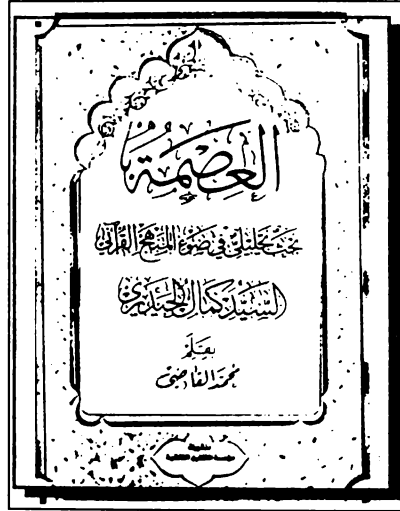 العِصْمَةُ
بَحْثٌ تَحْلِيلِيٌّ فِي ضَوْءِ المَنْهَجِ القُرْآنِيِّ
السَّيِّد كَمَال الحَيْدَرِي
بِقَلَم
محمد القاضي